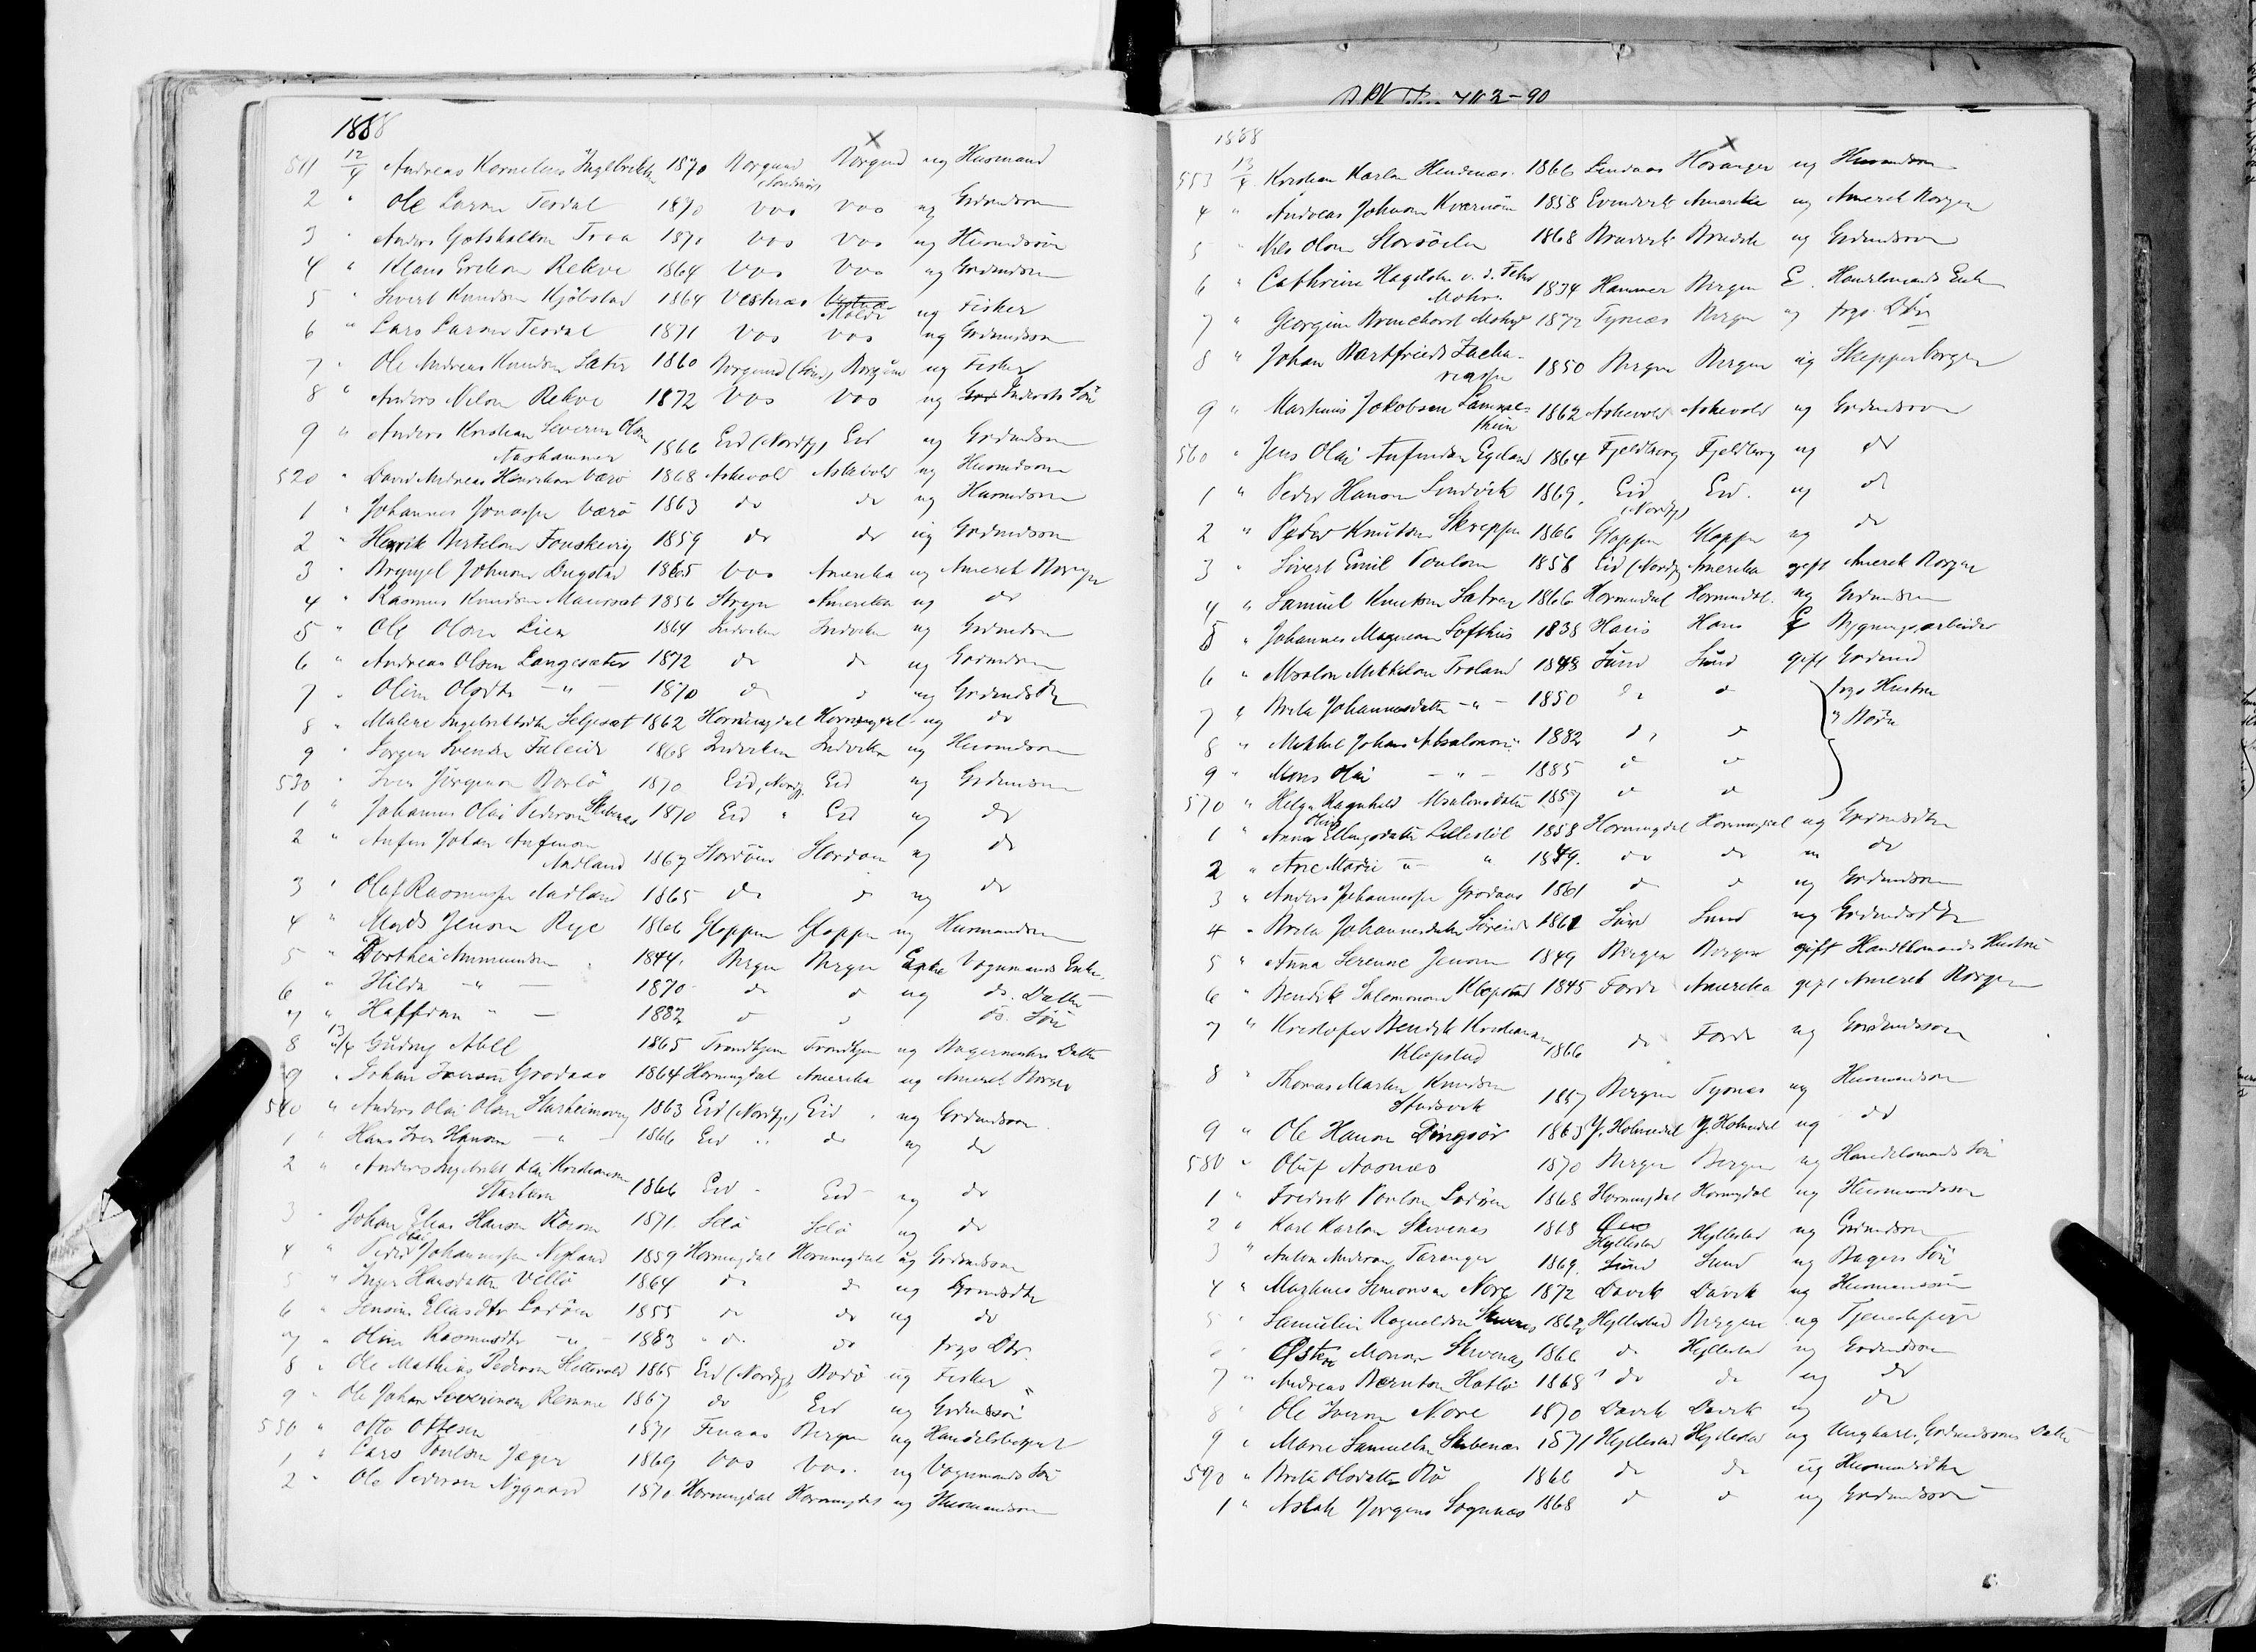 1888
511 12/4 Andreas Kornelius 1870 Borgund Borgund ug Husmand
Søndmør
2 " Ole Larsen Tesdal 1870 Vos Vos ug Grdmdson
3 " Anders Gotskalksen Traa 1870 Vos Vos ug Husmdsøn
4 " Klaus Erikson Rekve 1864 Vos Vos ug Grdmdson
5 " Sivert Knudsen Kjöbstad 1864 Vestnæs Molde ug Fisker
6 " Lars Larsen Tesdal 1871 Vos Vos ug Grdmdson
7 " Ole Andreas Knudsen Sæter 1860 Borgund (Sønd) Borgund ug Fisker
8 " Anders Nilsen Rekve 1872 Vos Vos ug Søn
9 " Anders Kristian Severin Olsen
Nashammer 1866 Eid (Nordfj) Eid ug Grdmdson
520 " David Andreas Henriksen Værø 1868 Askevold Askevold ug Husmdson
1 " Johannes Jonassen Værø 1863 do do ug Husmdson
2 " Henrik Bertelsen 1859 do do ug Grdmdson
3 " Brynjel Johnson Dugstad 1865 Vos Amerika ug Amerik Borger
4 " Rasmus Knudsen Maurset 1856 Stryn Amerika ug do
5 " Ole Olsen Lien 1864 Indviken Indviken ug Grdmdson
6 " Andreas Olsen Langesæter 1872 do do ug Grdmdson
7 " Oline Olsdtr - " - 1870 do do ug Grdmdsdtr
8 " Malene Ingebriktsdtr Seljeset 1862 Horningdal Horningdal ug do
9 " Jørgen Svendsen Faleide 1868 Indviken Indviken ug Husmdson
530 " Iver Jörgenson 1870 Eid, Nordfj. Eid ug Grdmdson
1 " Johannes Olai Pederson Skibenes 1870 Eid " Eid ug do
2 " Anfin Johan Anfinson
Aadland 1867 Stordøen Stordøen ug do
3 " Olaf Rasmussen Aadland 1865 do do ug do
4 " Mads Jenson Rye 1866 Gloppen Gloppen ug Husmandson
5 " Dorthea Ammundsen 1844 Bergen Bergen Enke Vognmands Enke
6 " Hilda - " - 1870 do do ug do. Datter
7 " Haffdan " - 1882 do do do. Søn
8 13/4 Gudny Abell 1865 Trondhjem Trondhjem ug Datter
9 " Johan Iverson Grodaas 1864 Horningdal Amerika ug Amerik Borger
540 " Anders Olai Olsen 1863 Eid (Nordfj) Eid " ug Grdmdson
1 " Hans Iver Hanson - " - 1866 Eid " do ug do
2 " Anders Ingebrikt Olai Kristianson
Starheim 1866 Eid - Eid - ug do
3 " Johan Elias Hanson 1871 Selø Selø ug do
4 " Peder Olai Johannessen Nyland 1859 Horningdal Horningdal ug Grdmdson
5 " Inger Hansdatter 1864 do do ug Grdmdsdtr
6 " Jensine Eliasdtr Lødøen 1855 do do ug do
7 " Oline Rasmusdtr - " - 1883 " do do frgs Dtr.
8 " Ole Mathias Pederson 1865 Eid (Nordfj) Bodø ug Fisker
9 " Ole Johan Severinson Remme 1867 do Eid ug Grdmdsøn
550 " Otto Ottesen 1871 Finaas Bergen ug Handelsbetjent
1 " Lars Poulsen Jæger 1869 Vos Vos. ug Vognmands Søn
2 " Ole Pederson Nygaard 1870 Horningdal Horningdal ug Husmandson
1888
553 13/4 Kristian Karlsen 1866 Lindaas Hosanger ug Husmdson
4 " Andreas Johnson Kværnøen 1858 Evindvik Amerika ug Amerik Borger
5 " Nils Olsen Storsöeln 1868 ug Grdmdson
6 " Cathrine Hagelsten v. d. Fehr
Mohr 1834 Hammer Bergen E. Handelsmands Enke
7 " Georgine 1872 Tysnæs Bergen ug frgs. Dtr
8 " Johan Hartfried Zacha-
riassen 1850 Bergen Bergen ug Skipper borger
9 " Martinus Jakobsen 1862 Askevold Askevold ug Grdmdson
560 " Jens Olai Anfindsen Egeland 1864 Fjeldberg Fjeldberg ug do
1 " Peder Hanson Lindvik 1869 Eid Eid. ug do
(Nordfj)
2 " Peder Knutson Skreppen 1866 Gloppen Gloppen ug do
3 " Sivert Emil Poulson 1858 Eid (Nordfj) Amerika gift Amerik Borger
4 " Samuel Knutson Sætren 1866 Horningdal Horningdal. ug Grdmdson
5 " Johannes Magneson Lofthus 1838 Haus Haus E Bygningsarbeider
6 " Absalon Mikkelsen Troland 1848 Sund Sund gift Grdmnd
7 " Brita Johannesdatter - " - 1850 do do frgs Hustru
8 " Mikkel Johan Absalonson 1882 do do " Børn
9 " Mons Olai - " - 1885 do do
570 " Helga Ragnhild Absalonsdatter 1887 do do
1 " Anna Oline Ellingsdatter Lillestöl 1858 Horningdal Horningdal ug Grdmdsdtr
2 " Ane Marie - " - " 1849. do do " do
3 " Anders Johannessen Grodaas 1861 do do ug Grdmdson
4 " Brita Johannesdatter Söreide 1861 Sund Sund ug Grdmdsdtr
5 " Anna Serenne Jenson 1849 Bergen Bergen gift Handelsmands Hustru
6 " Bendik Salomonson Klopstad 1845 Førde Amerika gift Amerik Borger
7 " Kristofer Bendik Kristianson
Klopstad 1866 do Førde ug Grdmdsson
8 " Thomas Martin Knudsen
1867 Bergen Tysnæs ug Husmandson
9 " Ole Hanson Dingsør 1863 Y. Holmedal Y. Holmedal ug do
580 " Oluf Aasnæs 1870 Bergen Bergen ug Handelsmands Søn
1 " Fredrik Poulsen Lødøen 1868 Horningdal Horningdal ug Husmandsson
2 " Karl Karlsen Skivenæs 1868 Hyllestad Hyllestad ug Grdmdson
3 " Anton Anderson Taranger 1869. Sund Sund ug Bagers Søn
4 " Martinus Simonsen Nore 1872 Davik Davik ug Husmandssøn
5 " Samuline Hyllestad Bergen ug Tjenestepige
6 " Østen Monson Skivenæs 1866 do Hyllestad ug Grdmdson
7 " Andreas Berntson Hatlø 1868 do do ug do
8 " Ole Iverson Nore 1870 Davik Davik ug do
9 " Marie Samuelsen Skibenæs 1871 Hyllestad Hyllestad ug Ungkarl, Grdmdsøns Datter
590 " Brita Olsdatter Bø 1866 do do ug Husmandsdtr
1 " Aslak Jørgens Sognnæs 1868 do do ug Grdmdssøn